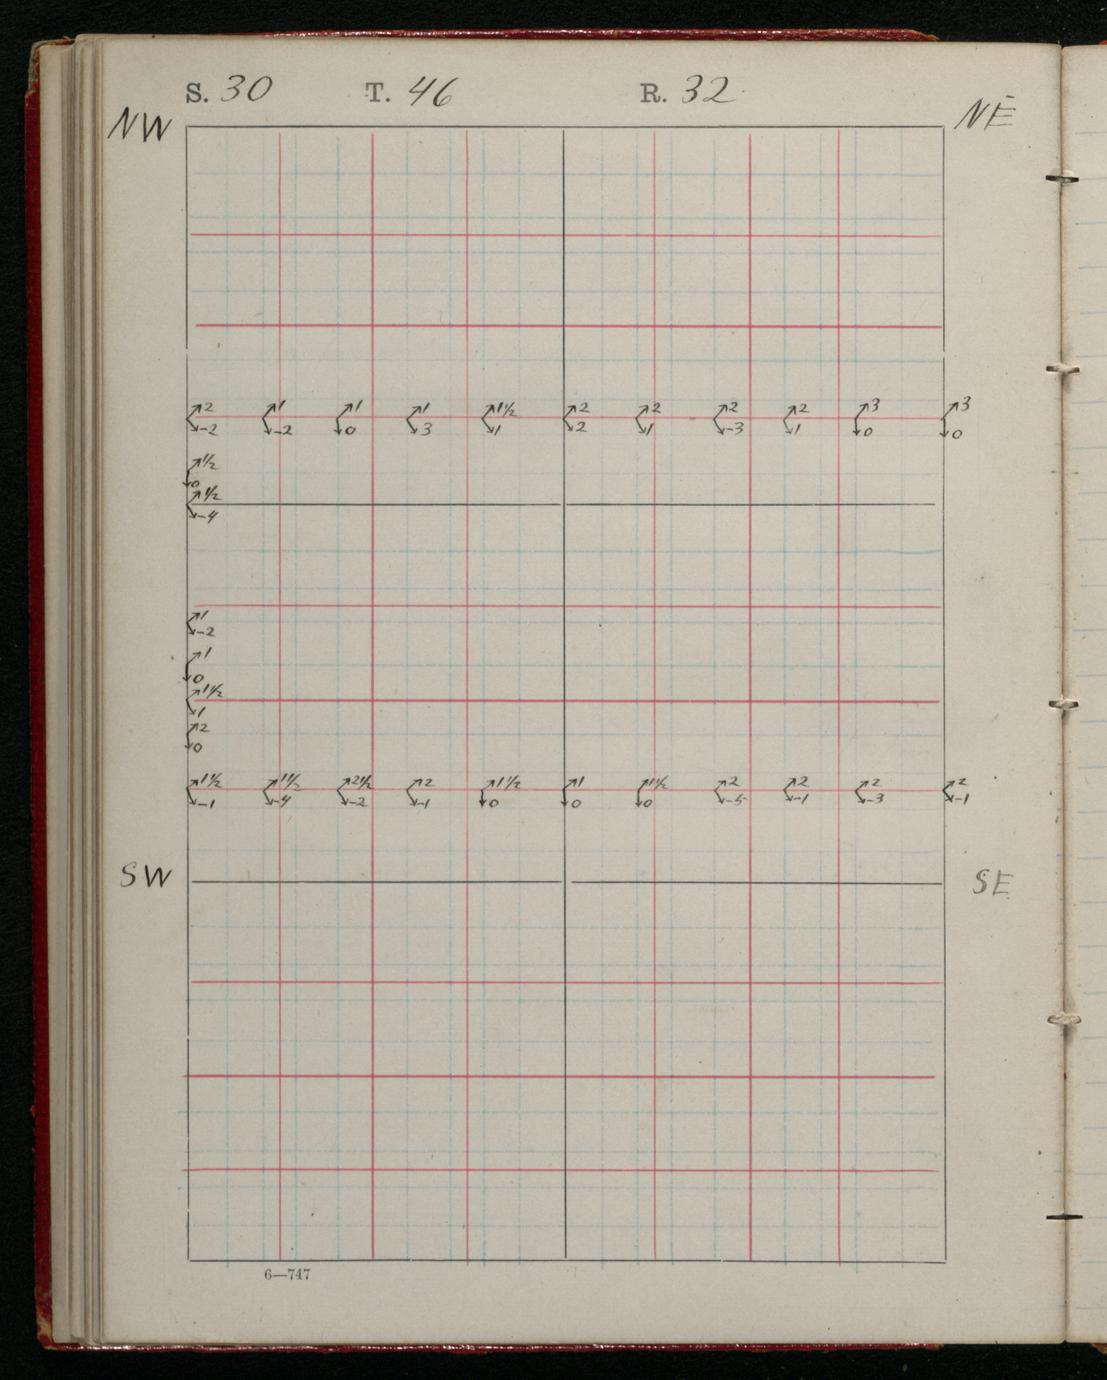 S. 30 T. 46 R. 32
NW NE
2 1 1 1 1½ 2 2 2 2 3 3
-2 -2 0 3 1 2 1 -3 1 0 0
1½
0
1½
-4
1
-2
1
0
1½
1
2
0
1½ 1½ 2½ 2 1½ 1 1½ 2 2 2 2
-1 -4 -2 -1 0 0 0 -5 -1 -3 -1
SW SE
6—747